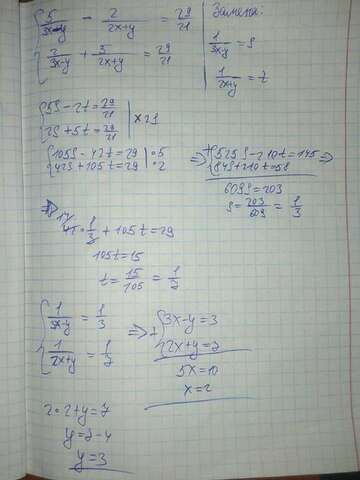 { 5/(3x-y) - 2/(2x+y) = 29/21
{ 2/(3x-y) + 5/(2x+y) = 29/21
Замена.
1/(3x-y) = s
1/(2x+y) = t
{ 5s - 2t = 29/21
{ 2s + 5t = 29/21 | × 21
{ 105s - 42t = 29 | · 5
{ 42s + 105t = 29 | · 2
=> + { 525s - 210t = 145 =>
{ 84s + 210t = 58
609s = 203
s = 203/609 = 1/3
14
42 · 1/3 + 105t = 29
105t = 15
t = 15/105 = 1/7
{ 1/(3x-y) = 1/3
{ 1/(2x+y) = 1/7
=> + { 3x - y = 3
{ 2x + y = 7
5x = 10
x = 2
2 · 2 + y = 7
y = 7 - 4
y = 3